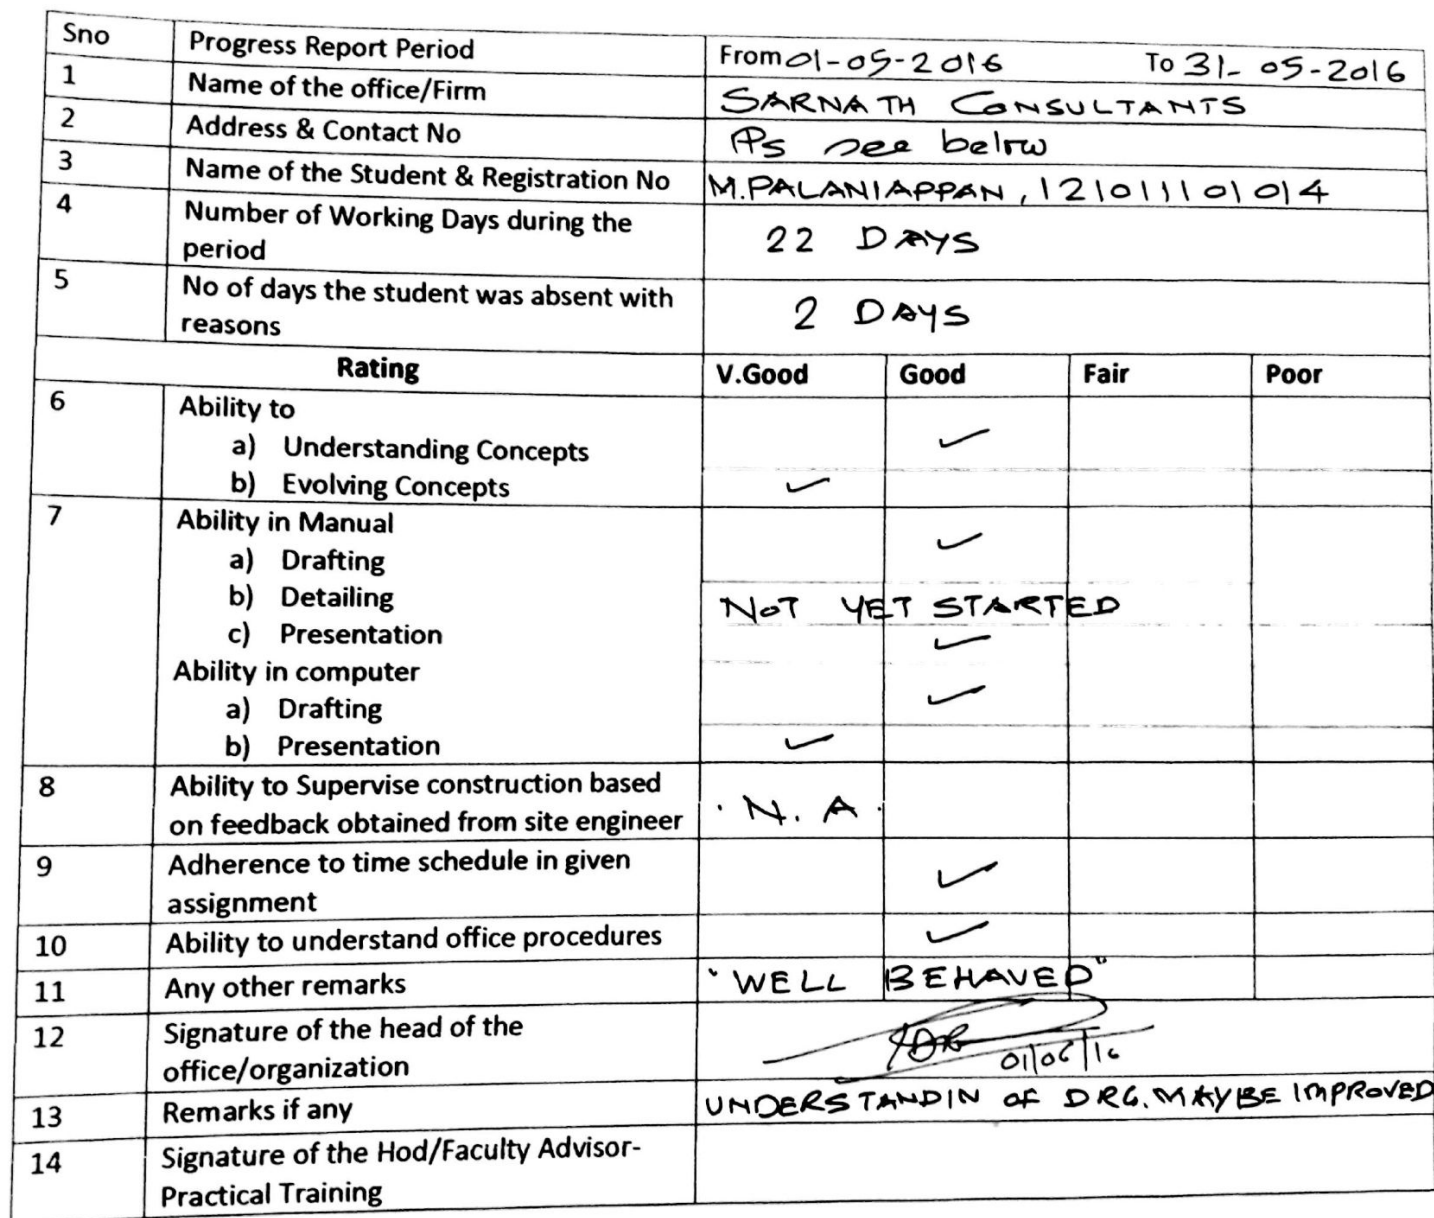 Sno Progress Report Period From 01-05-2016 To 31-05-2016
1 Name of the office/Firm SARNATH CONSULTANTS
2 Address & Contact No Ps see below
3 Name of the Student & Registration No M.PALANIAPPAN, 121011101014
4 Number of Working Days during the
period 22 DAYS
5 No of days the student was absent with
reasons 2 DAYS
Rating V.Good Good Fair Poor
6 Ability to
a) Understanding Concepts ✓
b) Evolving Concepts ✓
7 Ability in Manual
a) Drafting ✓
b) Detailing NOT YET STARTED
c) Presentation ✓
Ability in computer
a) Drafting ✓
b) Presentation ✓
8 Ability to Supervise construction based
on feedback obtained from site engineer N.A.
9 Adherence to time schedule in given
assignment ✓
10 Ability to understand office procedures ✓
11 Any other remarks "WELL BEHAVED"
12 Signature of the head of the
office/organization 01/06/16
13 Remarks if any UNDERSTANDIN OF DRG. MAYBE IMPROVED
14 Signature of the Hod/Faculty Advisor-
Practical Training